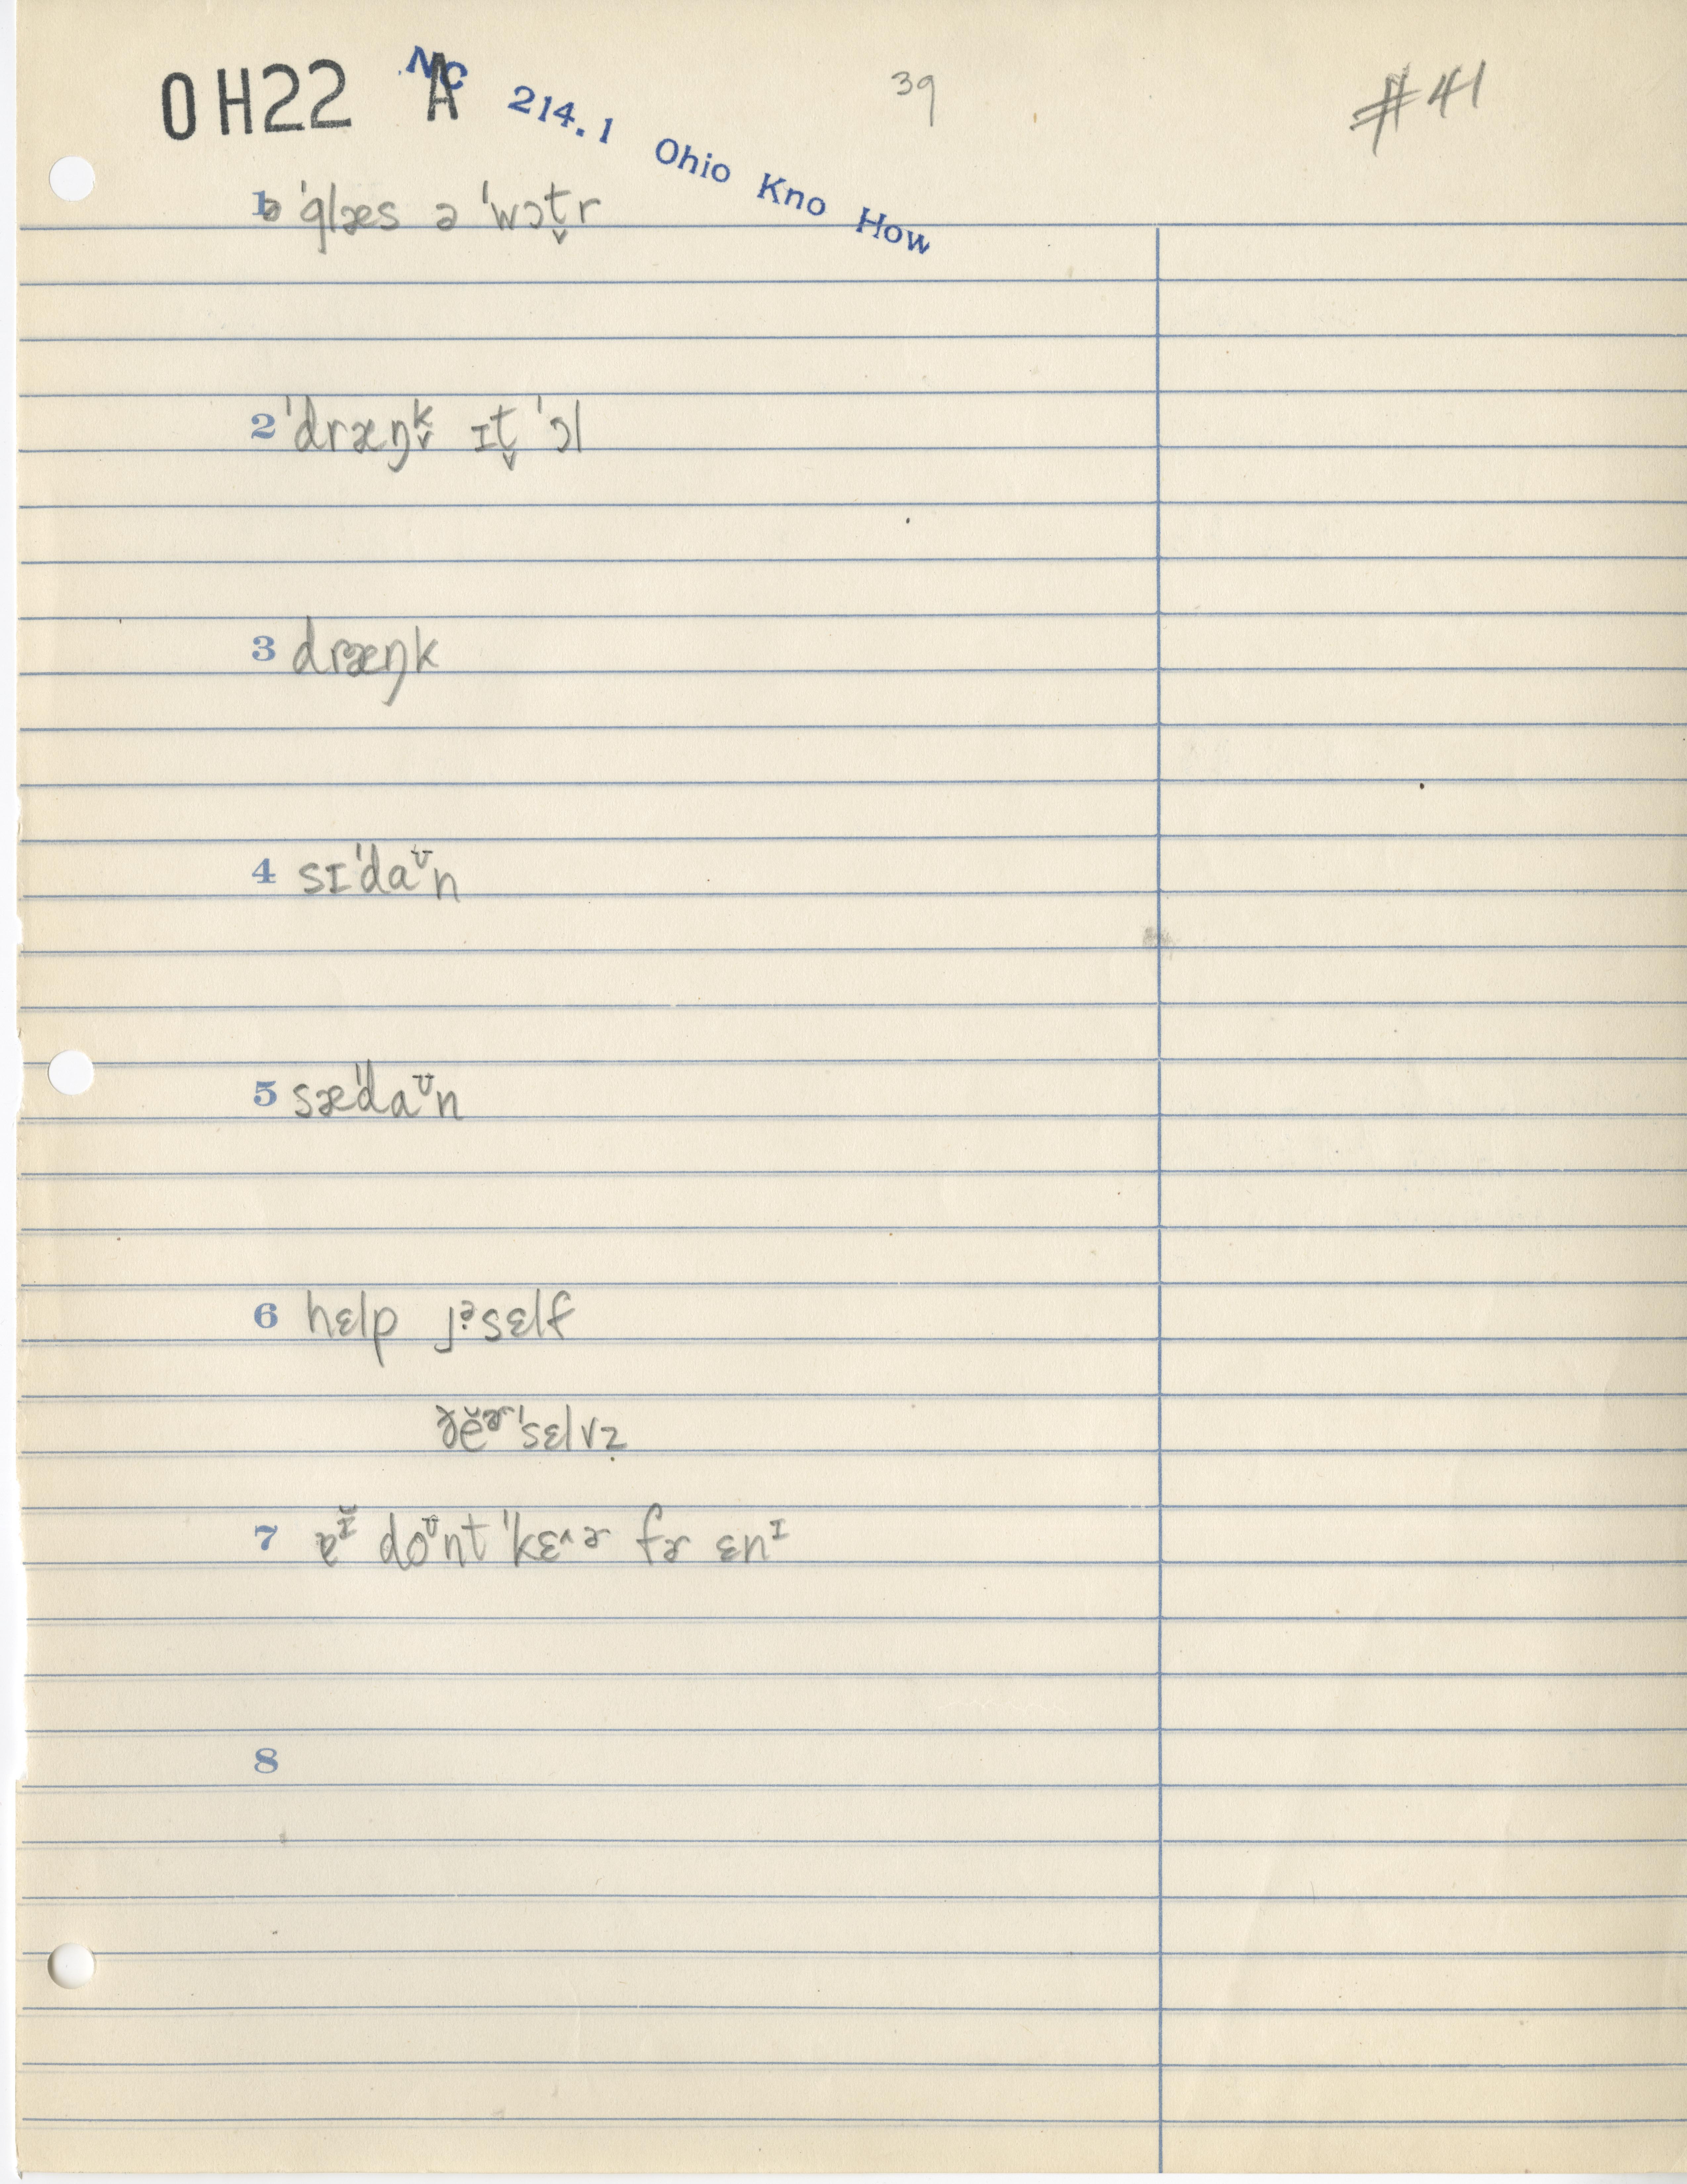 OH22 A NC 214.1 Ohio Kno How 39 #41
1 ə ˈglæs ə ˈwɔt̬r
2 ˈdræŋk̬ ɪt̬ ˈɔl
3 dræŋk
4 sɪˈdaʊ̆n
5 sæˈdaʊ̆n
6 hɛlp ɟə̣sɛlf
ðĕɚˈsɛlvẓ
7 ɐɪ̆ doʊ̆nt ˈkɛ^ɚ fɚ ɛnɪ
8